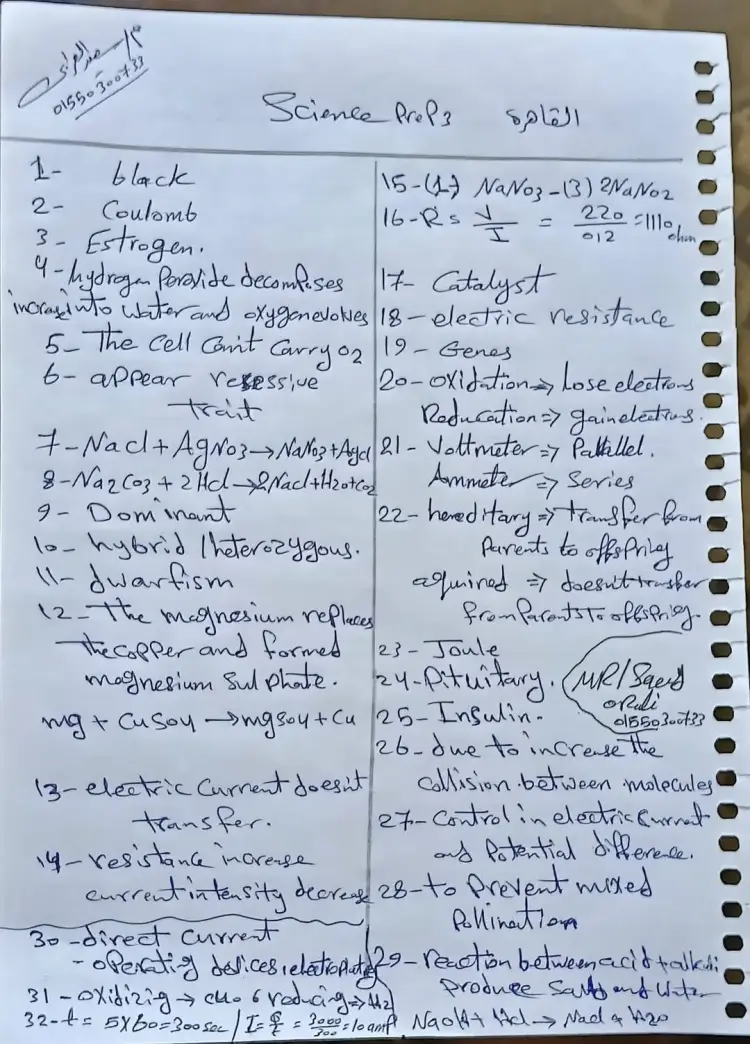 01550300733
Science Prep3 القاهرة
1- black
2- Coulomb
3- Estrogen.
4- hydrogen Peroxide decomposes
increase into water and oxygen evolves
5- The Cell Can't Carry O2
6- appear recessive
trait
7- Nacl + AgNO3 → NaNO3 + Agcl
8- Na2CO3 + 2Hcl → 2Nacl + H2O + CO2
9- Dominant
10- hybrid / heterozygous.
11- dwarfism
12- The magnesium replaces
the copper and formed
magnesium Sulphate.
mg + CuSO4 → mgSO4 + Cu
13- electric Current doesn't
transfer.
14- resistance increase
current intensity decrease
15- (1) NaNO3 - (3) 2NaNO2
16- R = V/I = 220/012 = 1110 ohm
17- Catalyst
18- electric resistance
19- Genes
20- oxidation => Lose electrons
Reducation => gain electrons.
21- Voltmeter => Parallel.
Ammeter => Series
22- hereditary => transfer from
Parents to offspring
aquired => doesn't transfer
from Parents To offspring.
23- Joule
24- Pituitary.
MR/Saeed
01550300733
25- Insulin.
26- due to increase the
Collision between molecules
27- Control in electric Current
and Potential difference.
28- to Prevent mixed
Pollination
29- reaction between acid + alkali
Produce Salt and Water
NaOH + Hcl → Nacl + H2O
30- direct current
- operating devices, electroplating
31- Oxidizing → cuo & reducing => H2
32- t = 5X60 = 300 sec / I = Q/t = 3000/300 = 10 amp